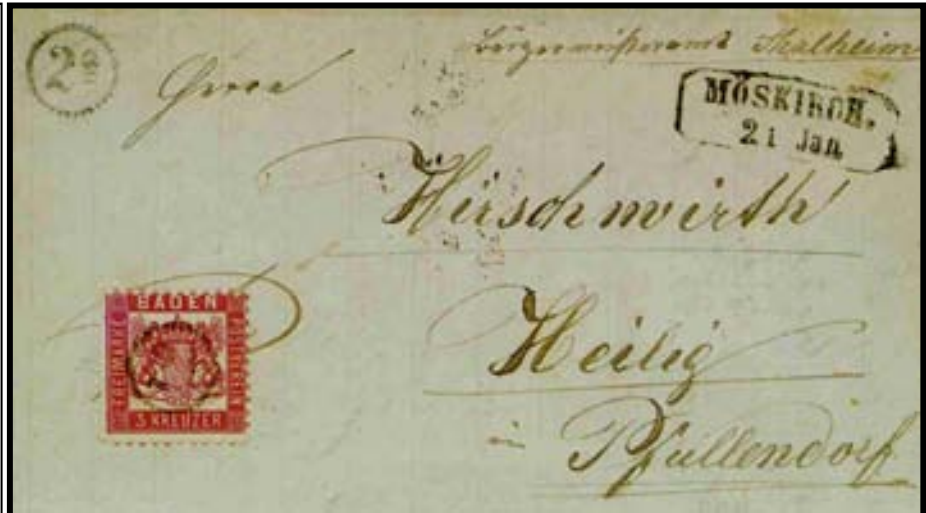 Bürgermeisteramt Thalheim
2a
Herrn
MÖSKIRCH.
21 Jan.
Hirschwirth
Heilig
in Pfullendorf
BADEN
FREIMARKE
POSTVEREIN
3 KREUZER